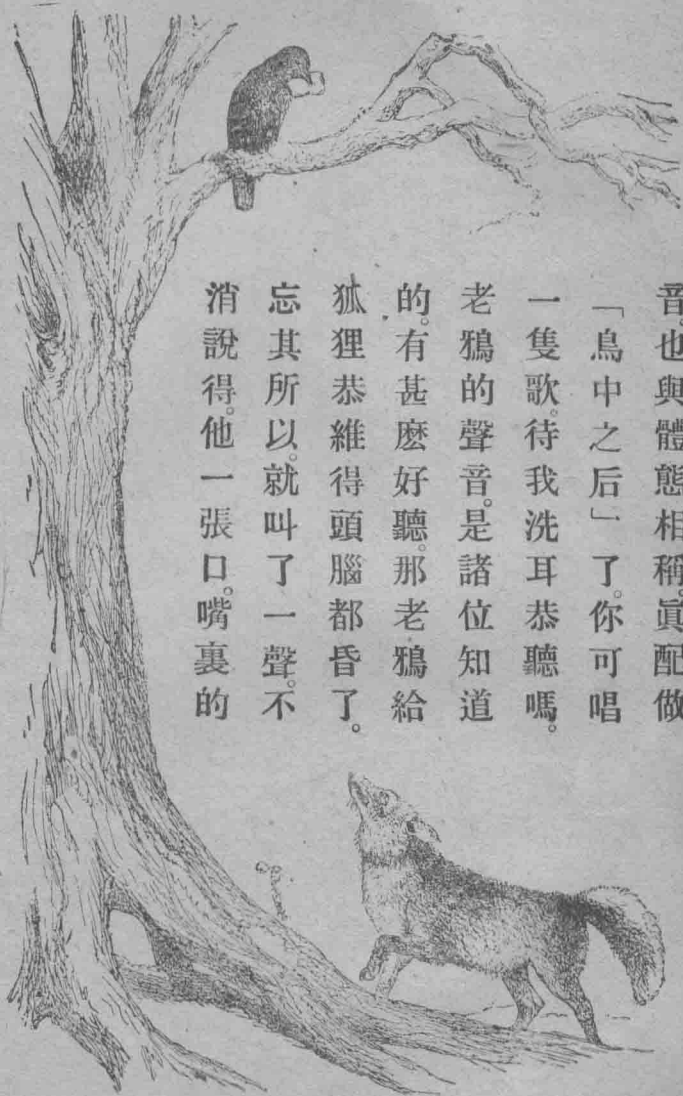 音。也與體態相稱。眞配做
「鳥中之后」了。你可唱
一隻歌。待我洗耳恭聽嗎。
老鴉的聲音。是諸位知道
的。有甚麽好聽。那老鴉給
狐狸恭維得頭腦都昏了。
忘其所以。就叫了一聲。不
消說得。他一張口。嘴裏的